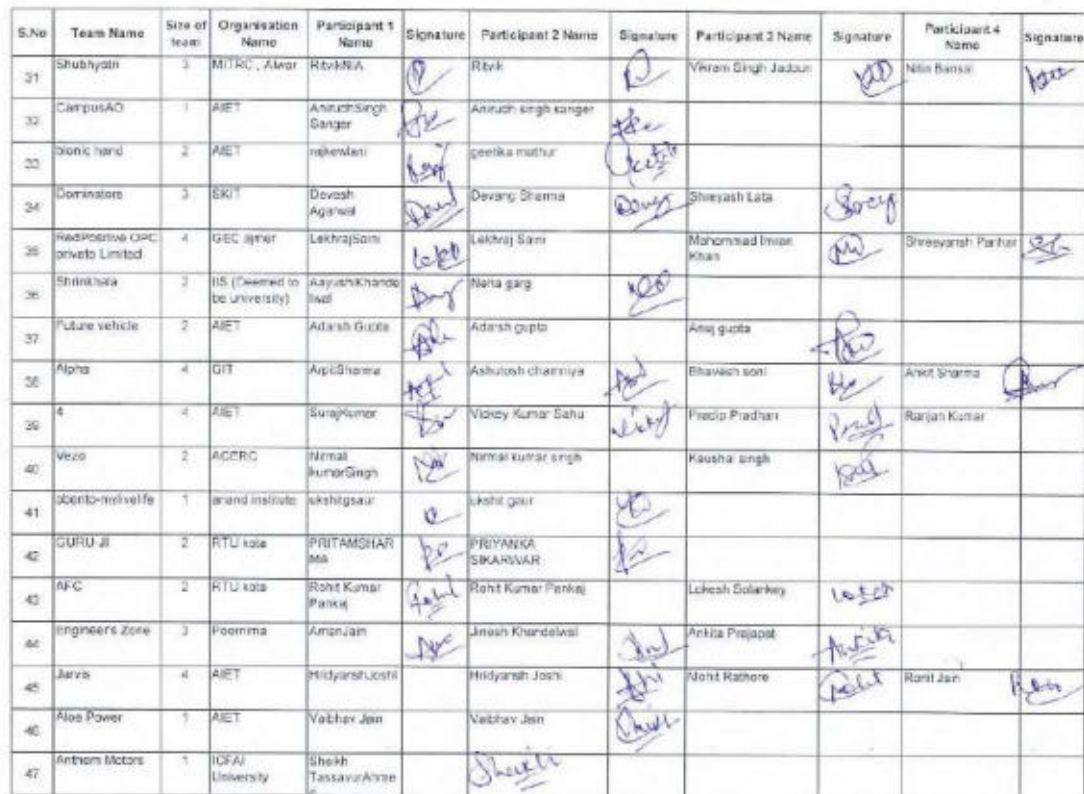 S.No Team Name Size of team Organisation Name Participant 1 Name Signature Participant 2 Name Signature Participant 3 Name Signature Participant 4 Name Signature
31 Shubhyatri 3 MITRC , Alwar RitvikNIA Ritvik Vikram Singh Jadoun Nitin Bansal
32 CampusAO 1 AIET AnirudhSingh Sanger Anirudh singh sanger
33 bionic hand 2 AIET geetika mathur
34 Dominators 3 SKIT Devesh Agarwal Devang Sharma Shreyash Lata
35 RedPositive OPC private Limited 4 GEC ajmer LekhrajSaini Lekhraj Saini Mohammad Imran Khan Shreeyansh Parihar
36 Shrinkhala 2 IIS (Deemed to be university) AayushiKhandelwal Neha garg
37 Future vehicle 2 AIET Adarsh Gupta Adarsh gupta Anuj gupta
38 Alpha 4 GIT ArpitSharma Ashutosh Bhavesh soni Ankit Sharma
39 4 4 AIET SurajKumar Vickey Kumar Sahu Pradip Pradhan Ranjan Kumar
40 Vezo 2 ACERC Nirmal kumarSingh Nirmal kumar singh Kaushal singh
41 1 anand institute ukshitgaur ukshit gaur
42 GURU-JI 2 RTU kota PRITAMSHARMA PRIYANKA SIKARWAR
43 AFC 2 RTU kota Rohit Kumar Pankaj Rohit Kumar Pankaj Lokesh Solankey
44 Engineer's Zone 3 Poornima AmanJain Jinesh Khandelwal Ankita Prajapat Ankita
45 Jarvis 4 AIET HridyanshJoshi Hridyansh Joshi Mohit Rathore Ronit Jain
46 Aloe Power 1 AIET Vaibhav Jain Vaibhav Jain
47 Anthem Motors 1 ICFAI University Sheikh TassavurAhme Sheikh